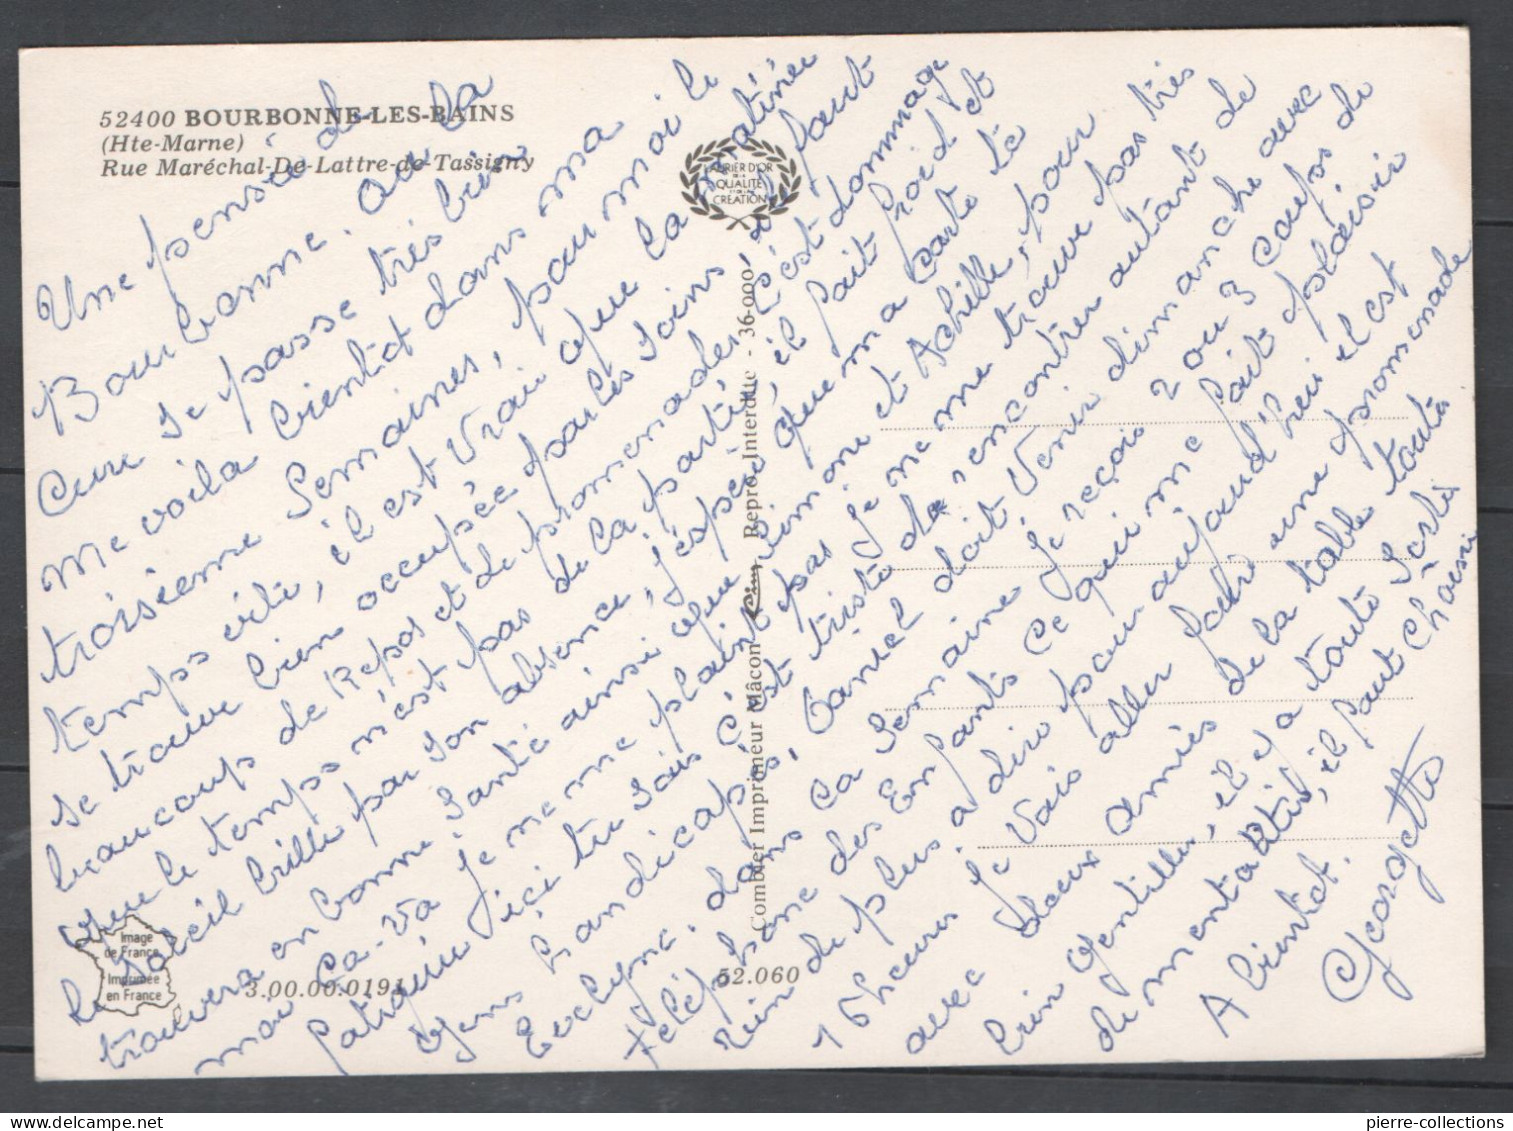 52400 BOURBONNE-LES-BAINS
(Hte-Marne)
Rue Maréchal-De-Lattre-de-Tassigny
ATELIER D'OR
DE LA
QUALITÉ
ET DE LA
CRÉATION
Une pensé de
Bourbonne. ou la
Cure se passe très bien
Me voila bientot dans ma
troisième Semaines, pour moi le
temps vite, il est vrai que la matinée
se trouve bien occupée par les soins, il faut
beaucoup de Repos et de promenades C'est dommage
que le temps n'est pas de la partie, il fait froid et
le Soleil brille par son absence, j'espère que ma carte te
trouvera en bonne Santé ainsi que Simone et Achille, pour
moi ça-va je me me plaint pas je ne me trouve pas très
fatiguée ici tu sais C'est triste de rencontrer autant de
gens handicapés, Daniel doit venir dimanche avec
Evelyne, dans la Semaine Je reçois 2 ou 3 Coups de
téléphone des Enfants Ce qui me fait plaisir
rien de plus a dire pour aujourd'hui il est
16 heures Je vais aller faire une promenade
avec deux amies de la table toute
bien gentilles, il y a toute Sorte
de mentalités, il faut Choisir
A bientot.
Georgette
Combier Imprimeur Mâcon Cim Repro. Interdite - 36-000
Image
de France
Imprimée
en France
3.00.00.0191
52.060
delcampe.net
pierre-collections